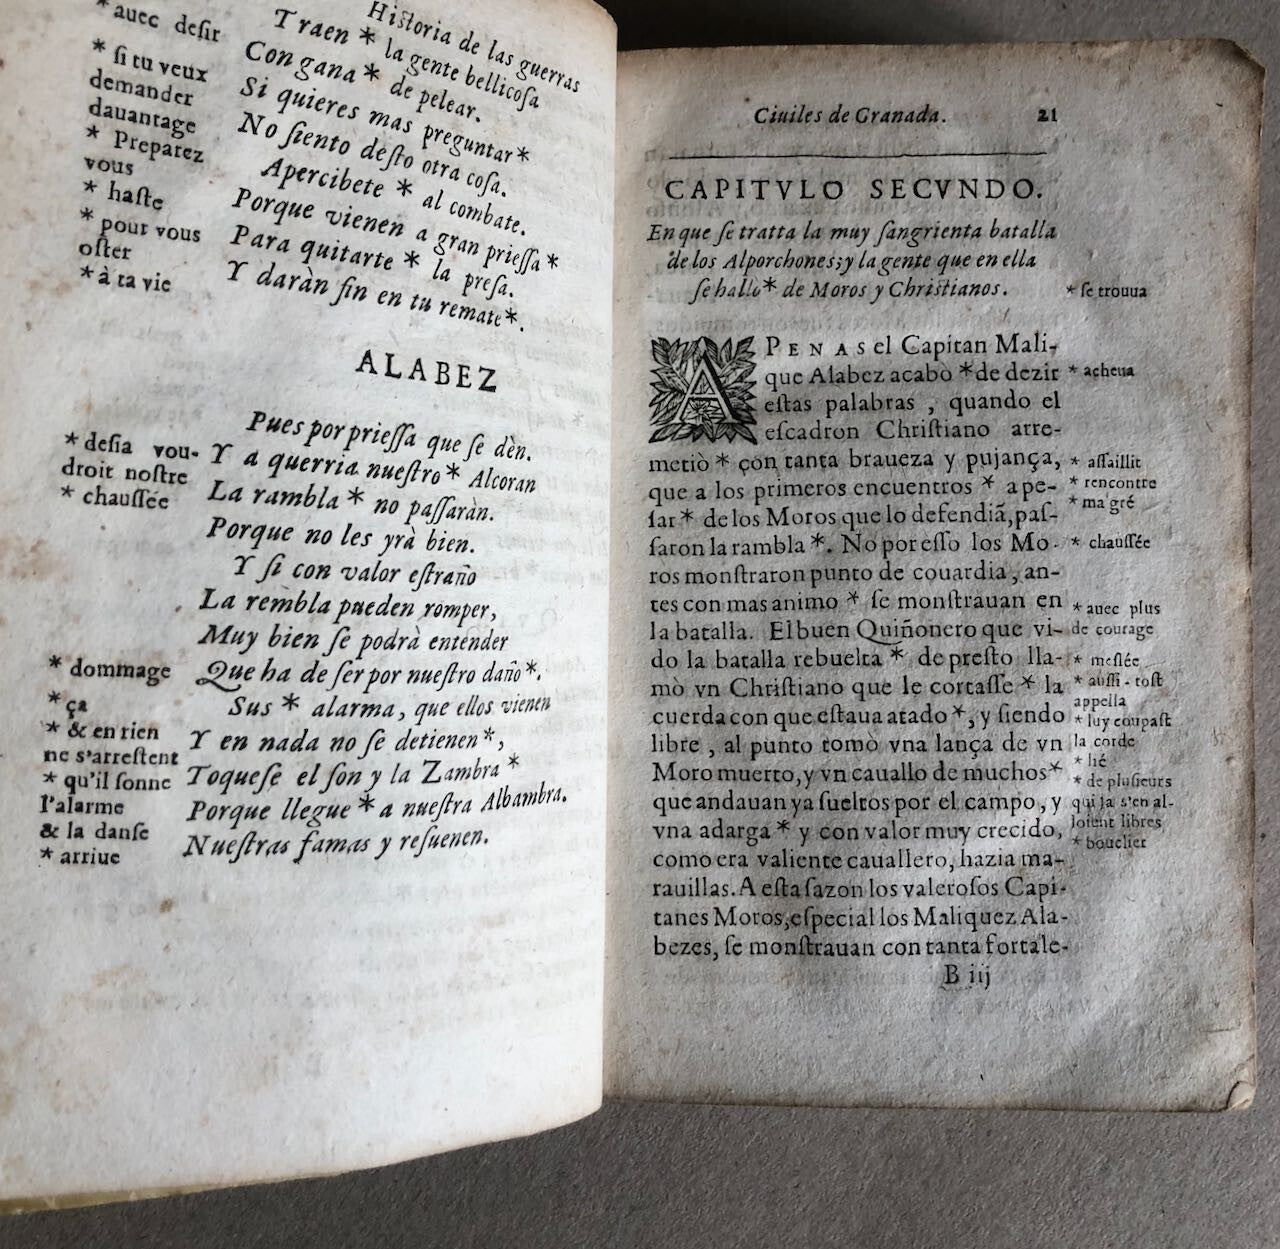 Historia de las guerras
* auec desir
Traen * la gente bellicoſa
Con gana * de pelear.
* ſi tu veux
demander
dauantage
Si quieres mas preguntar *
No ſiento deſto otra coſa.
* Preparez
vous
Apercibete * al combate.
* haſte
Porque vienen a gran prieſſa *
* pour vous
oſter
Para quitarte * la preſa.
* à ta vie
Y daràn fin en tu remate *.
ALABEZ
Pues por prieſſa que ſe dèn.
* deſia vou-
droit noſtre
Y a querria nueſtro * Alcoran
* chauſſée
La rambla * no paſſaràn.
Porque no les yrà bien.
Y ſi con valor eſtraño
La rembla pueden romper,
Muy bien ſe podrà entender
* dommage
Que ha de ſer por nueſtro daño *.
* ça
Sus * alarma, que ellos vienen
* & en rien
ne s'arreſtent
Y en nada no ſe detienen *,
* qu'il ſonne
l'alarme
& la danſe
Toqueſe el ſon y la Zambra *
* arriue
Porque llegue * a nueſtra Alhambra.
Nueſtras famas y reſuenen.
Ciuiles de Granada. 21
CAPITVLO SECVNDO.
En que ſe tratta la muy ſangrienta batalla
de los Alporchones; y la gente que en ella
ſe hallo * de Moros y Chriſtianos.
* ſe trouua
APENAS el Capitan Mali-
que Alabez acabò * de dezir
* acheua
eſtas palabras, quando el
eſcadron Chriſtiano arre-
metiò * çon tanta braueza y pujança,
* aſſaillit
que a los primeros encuentros * a pe-
* rencontre
ſar * de los Moros que lo defendiã, paſ-
* ma gré
ſaron la rambla *. No por eſſo los Mo-
* chauſſée
ros monſtraron punto de couardia, an-
tes con mas animo * ſe monſtrauan en
* auec plus
de courage
la batalla. El buen Quiñonero que vi-
do la batalla rebuelta * de preſto lla-
* meſlée
mò vn Chriſtiano que le cortaſſe * la
* auſſi-toſt
appella
cuerda con que eſtaua atado *, y ſiendo
* luy coupaſt
la corde
libre, al punto tomò vna lança de vn
* lié
Moro muerto, y vn cauallo de muchos *
* de pluſieurs
qui ja s'en al-
loient libres
que andauan ya ſueltos por el campo, y
vna adarga * y con valor muy crecido,
* bouclier
como era valiente cauallero, hazia ma-
rauillas. A eſta ſazon los valeroſos Capi-
tanes Moros, eſpecial los Maliquez Ala-
bezes, ſe monſtrauan con tanta fortale-
B iij